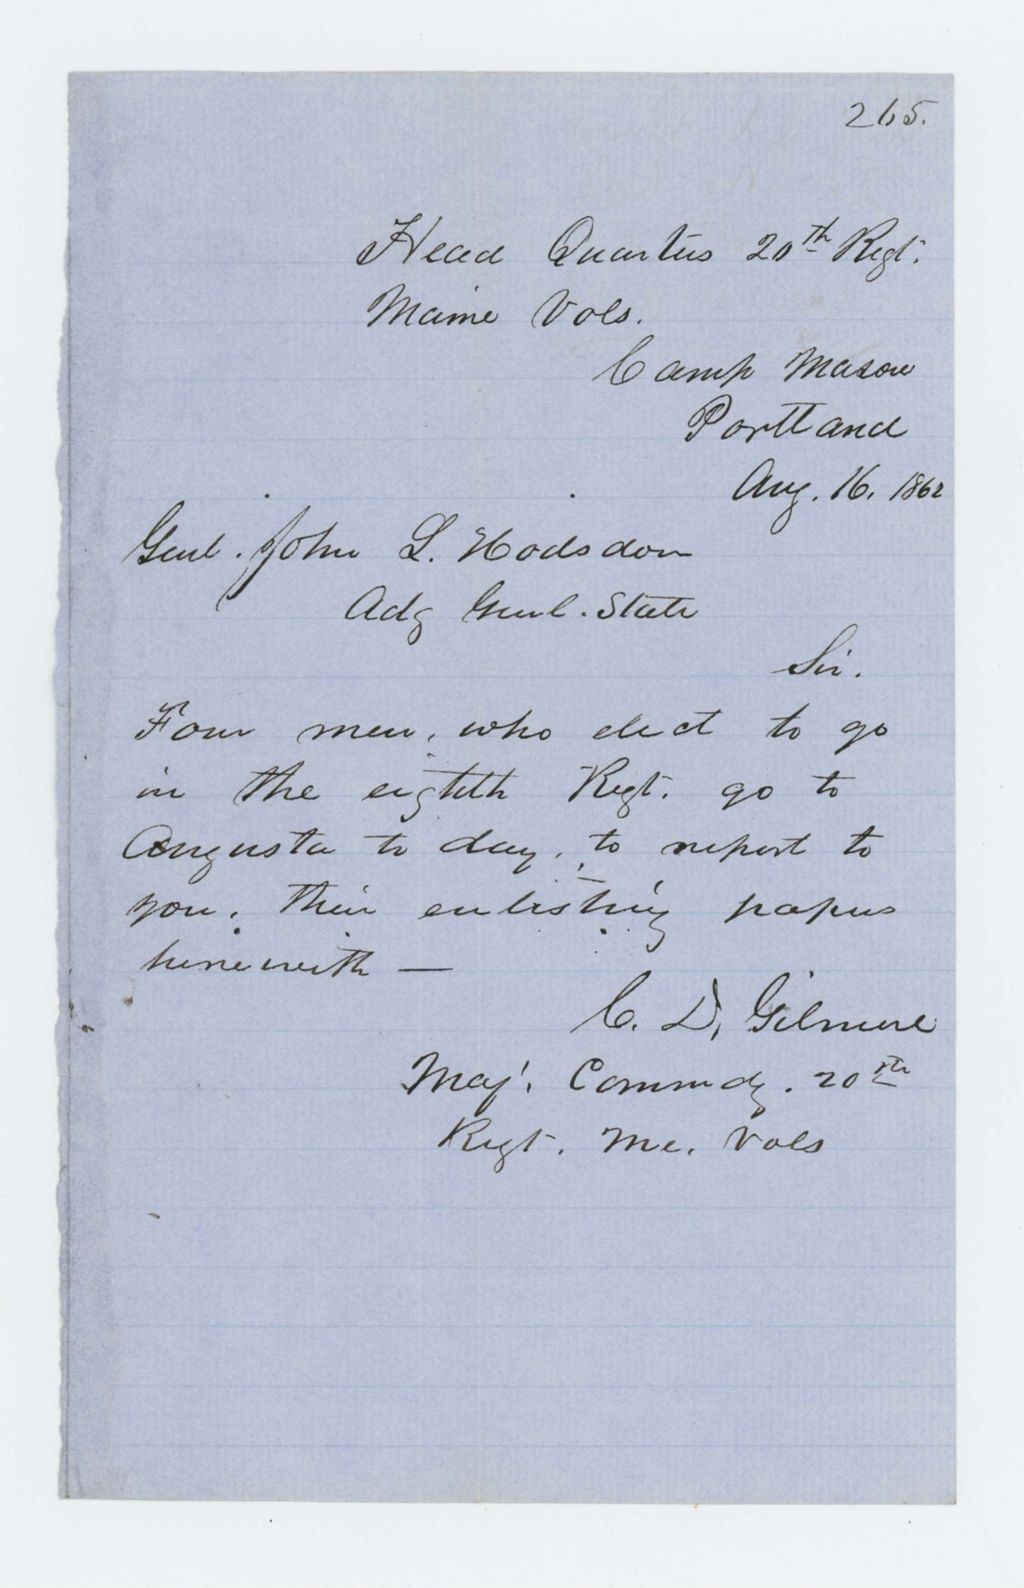 265.
Head Quarters 20th Regt.
Maine Vols.
Camp Mason
Portland
Aug. 16. 1862
Genl. John L. Hodsdon
Adg Genl. State
Sir.
Four men, who elect to go
in the eighth Regt. go to
Augusta to day, to report to
you. Their enlisting papers
herewith —
C. D. Gilmore
Maj. Commdg. 20th
Regt. Me. Vols